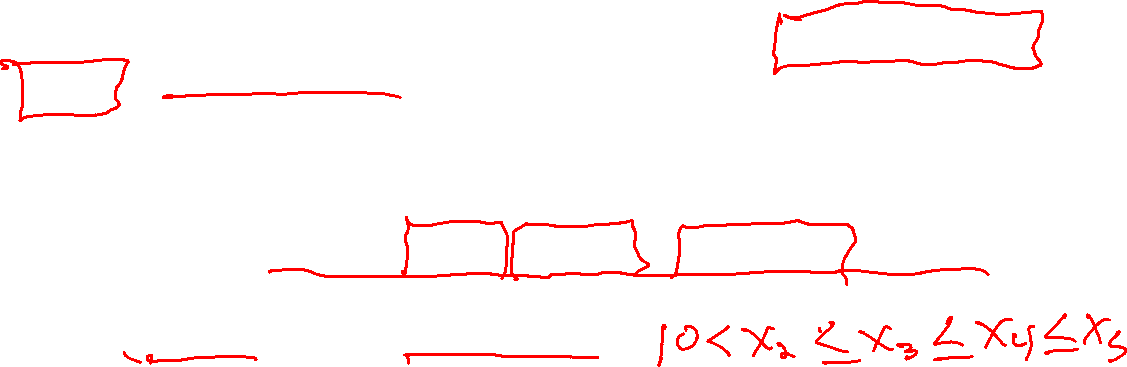 10 < x₂ ≤ x₃ ≤ x₄ ≤ x₅